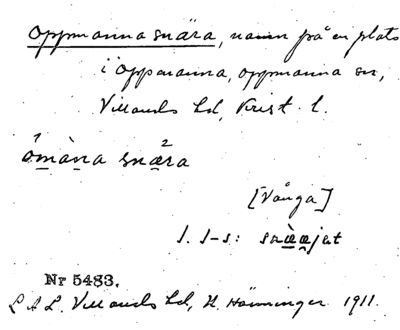 Oppmanna snära, namn på en plats
i Oppmanna, Oppmanna sn,
Villands hd, Krist. l.
òmàna snæra
[Vånga]
J. J-s:
Nr 5483.
L A L. Villands hd, H. Hänninger 1911.